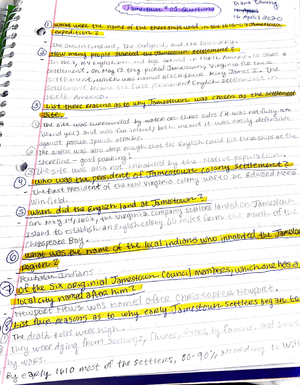 Jamestown #01 Questions
16 April 2020
① What were the name of the three ships used in the Jamestown
expedition?
The Susan Constant, the Godspeed, and the Discovery.
② How many people founded the Jamestown settlement?
In 1607, 104 Englishmen and boys arrived in North America to start a
settlement. On May 13 they picked Jamestown, Virginia for their
settlement, which was named after their King, James I. The
settlement became the first permanent English settlement in
North America.
③ List three reasons as to why Jamestown was chosen as the settlement
site.
The site was surrounded by water on three sides (it was not fully an
island yet) and was far inland; both meant it was easily defensible
against possible Spanish attacks.
The water was also deep enough that the English could tie their ships at the
shoreline - good parking!
The site was also not inhabited by the Native population.
④ Who was the president of Jamestown colony settlement?
The first president of the new Virginia colony was to be Edward Maria
Wingfield.
⑤ When did the English land at Jamestown?
On May 14, 1607, the Virginia Company settlers landed on Jamestown
Island to establish an English colony 60 miles from the mouth of the
Chesapeake Bay.
⑥ What was the name of the local indians who inhabited the Jamestown
region?
Powhatan Indians
⑦ Of the six original Jamestown Council members, which one has a
local city named after him?
Newport News was named after Christopher Newport.
⑧ List four reasons as to why early Jamestown settlers began to
The death tolls were high.
They were dying from swellings, fluxes, fevers, by famine, and
by wars.
By early 1610 most of the settlers, 80-90% according to